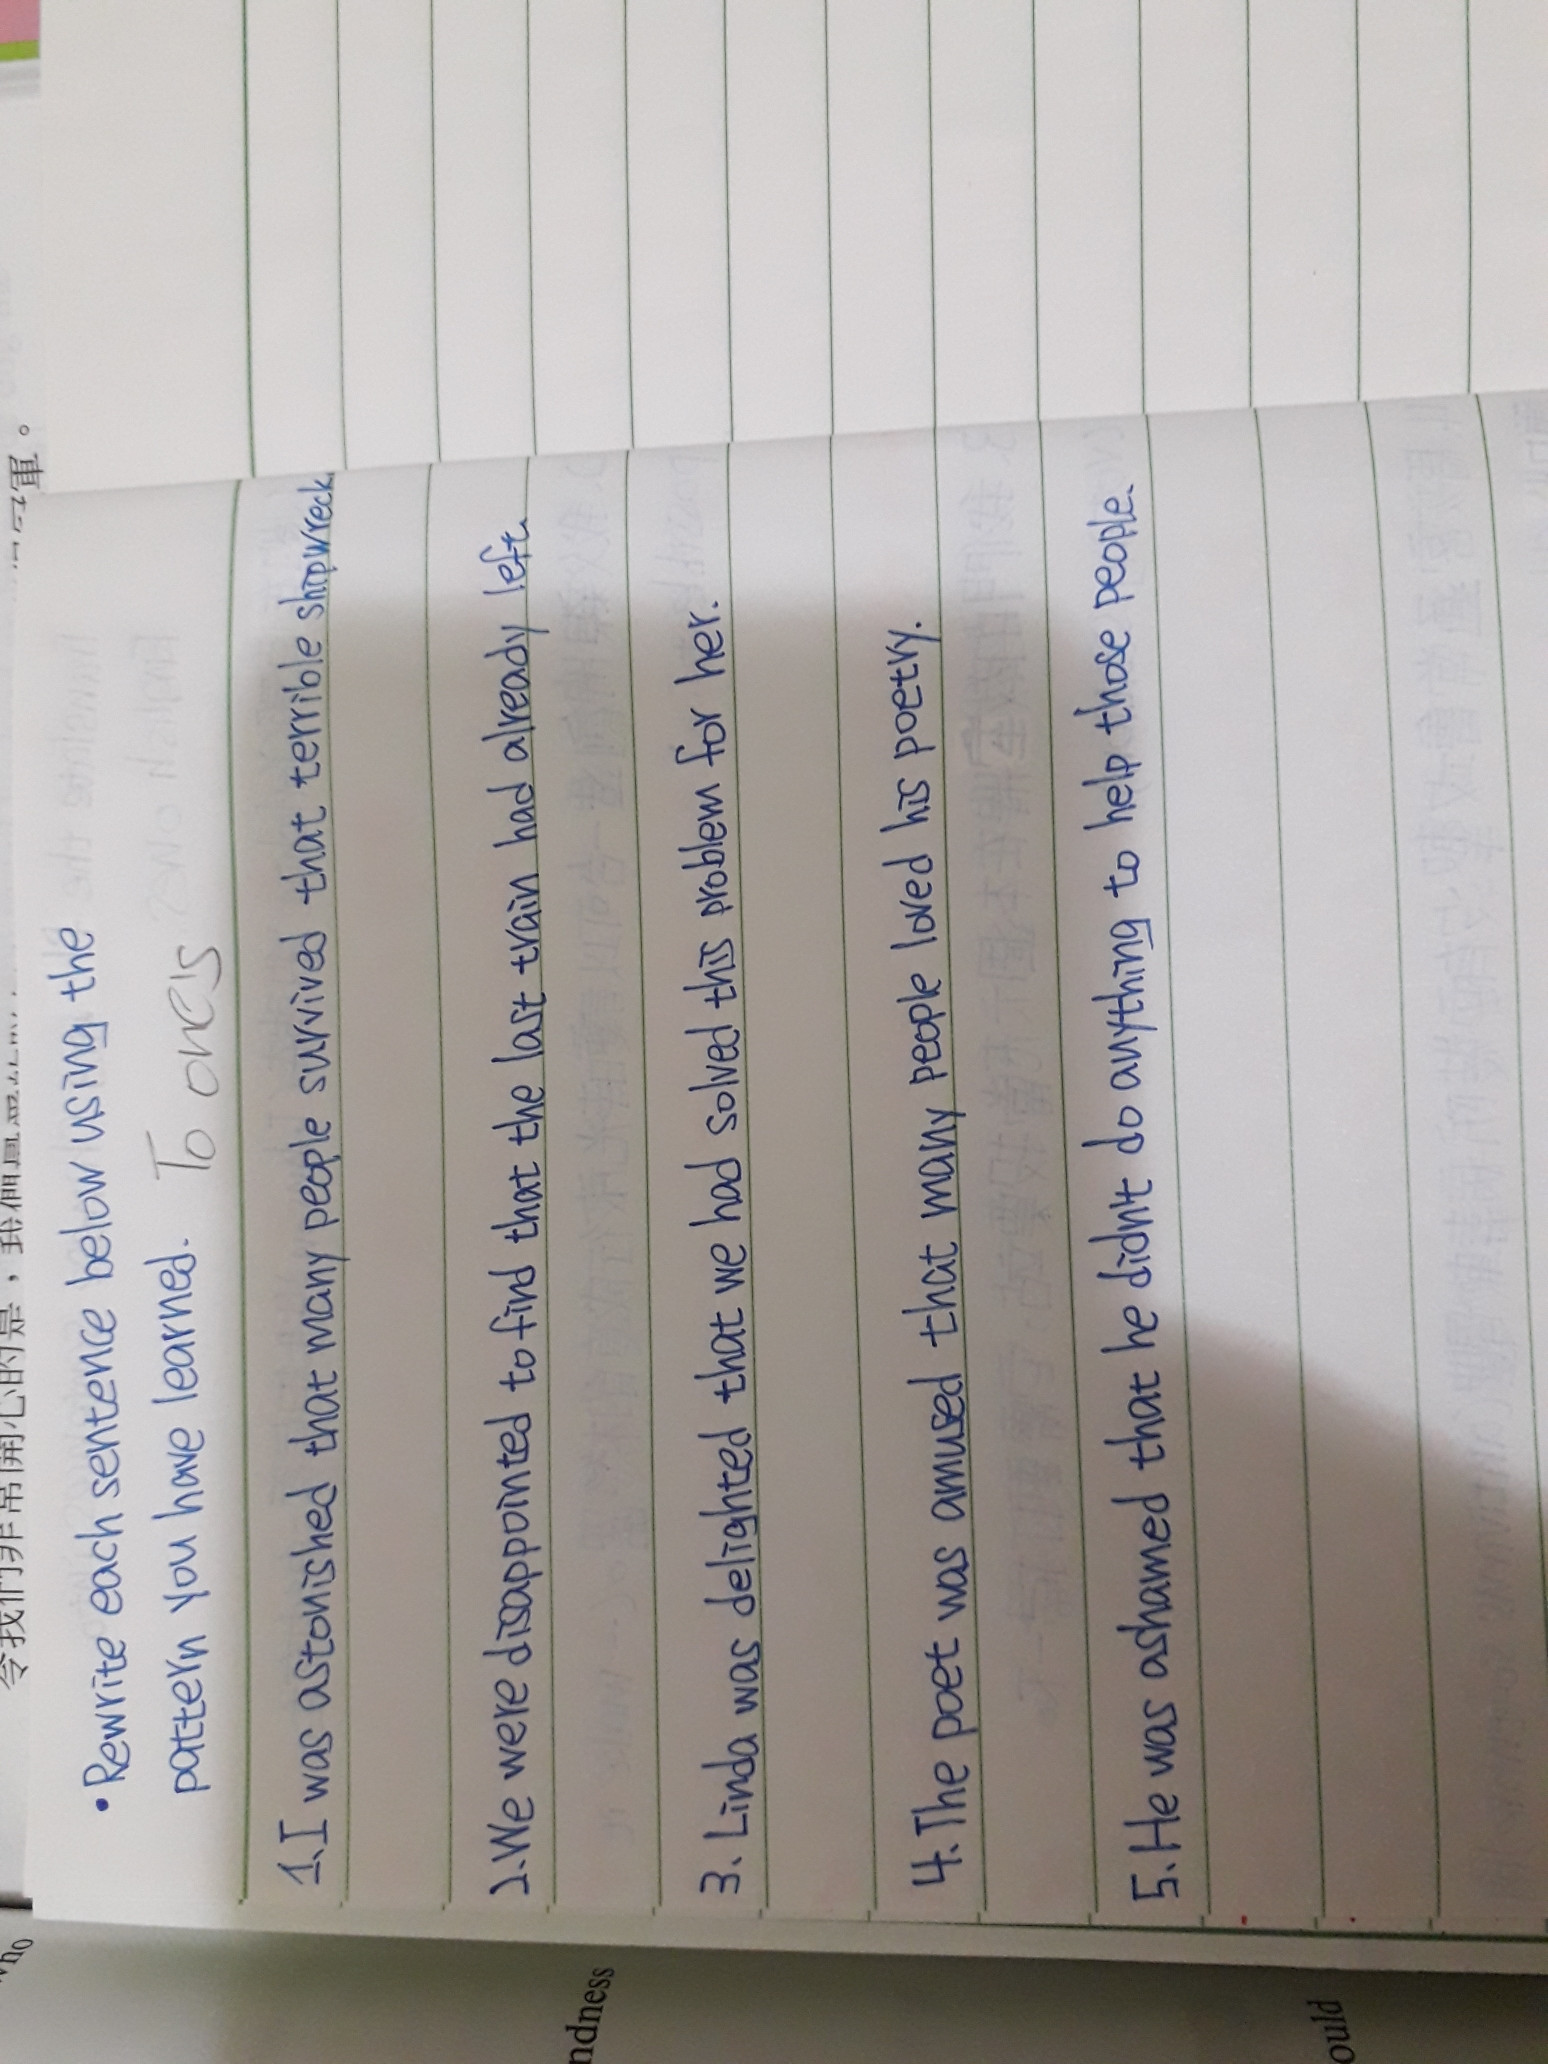 令我们非常開心的是，我們真
• Rewrite each sentence below using the
pattern you have learned. To one's
1. I was astonished that many people survived that terrible shipwreck.
2. We were disappointed to find that the last train had already left.
3. Linda was delighted that we had solved this problem for her.
4. The poet was amused that many people loved his poetry.
5. He was ashamed that he didn't do anything to help those people.
ndness
ould